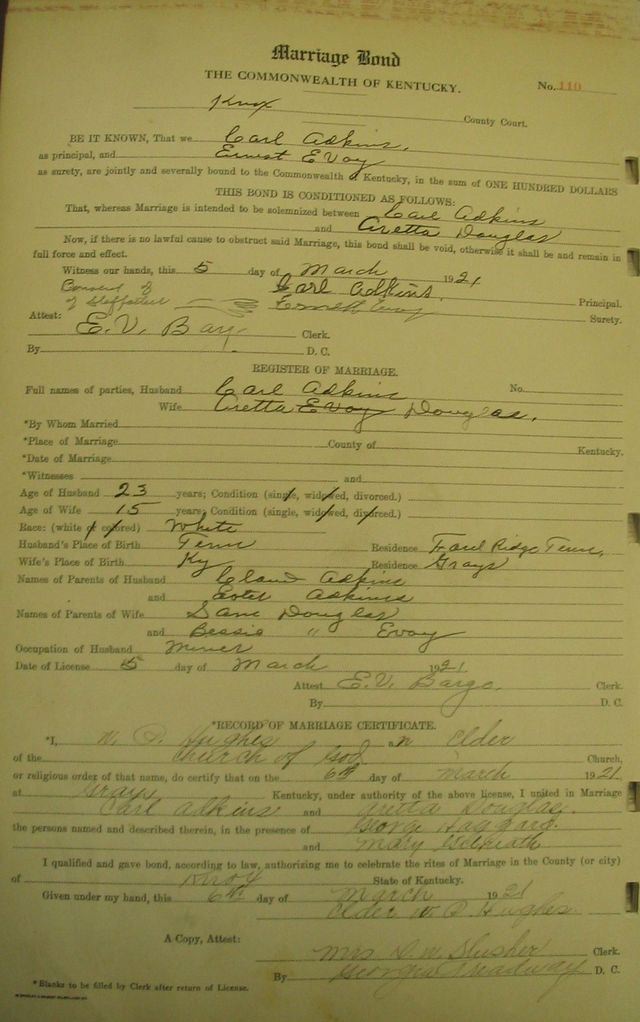 Marriage Bond
THE COMMONWEALTH OF KENTUCKY.
No. 110
Knox County Court.
BE IT KNOWN, That we Carl Adkins,
as principal, and Ernest Evoy
as surety, are jointly and severally bound to the Commonwealth of Kentucky, in the sum of ONE HUNDRED DOLLARS
THIS BOND IS CONDITIONED AS FOLLOWS:
That, whereas Marriage is intended to be solemnized between Carl Adkins
and Aretta Douglas
Now, if there is no lawful cause to obstruct said Marriage, this bond shall be void, otherwise it shall be and remain in
full force and effect.
Witness our hands, this 5 day of March 1921
Consent of Carl Adkins. Principal.
of Stepfather Evoy Surety.
Attest: E. V. Bargo. Clerk.
By D. C.
REGISTER OF MARRIAGE.
Full names of parties, Husband Carl Adkins No.
Wife Aretta Evoy Douglas,
*By Whom Married
*Place of Marriage County of Kentucky.
*Date of Marriage
*Witnesses and
Age of Husband 23 years; Condition (single, widowed, divorced.)
Age of Wife 15 years; Condition (single, widowed, divorced.)
Race: (white or colored) White
Husband's Place of Birth Tenn Residence Ridge Tenn,
Wife's Place of Birth Ky Residence Grays
Names of Parents of Husband Adkins
and Adkins
Names of Parents of Wife Sam Douglas
and Bessie " Evoy
Occupation of Husband Miner
Date of License 5 day of March 1921
Attest E. V. Bargo. Clerk.
By D. C.
*RECORD OF MARRIAGE CERTIFICATE.
*I, W. P. Hughes an Elder
of the Church of God Church,
or religious order of that name, do certify that on the 6th day of March 1921
at Grays Kentucky, under authority of the above license, I united in Marriage
Carl Adkins and Aretta Douglas.
the persons named and described therein, in the presence of George Haggard.
and Mary
I qualified and gave bond, according to law, authorizing me to celebrate the rites of Marriage in the County (or city)
of Knox State of Kentucky.
Given under my hand, this 6th day of March 1921
Elder W P Hughes.
A Copy, Attest: Mrs D. W. Slusher Clerk.
By Georgia Treadway D. C.
*Blanks to be filled by Clerk after return of License.